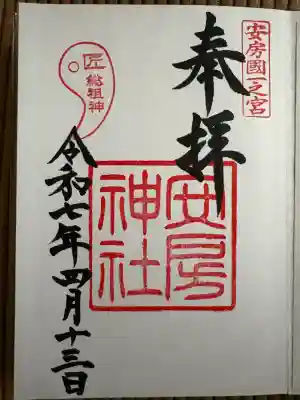 安房國一之宮
奉拝
安房
神社
匠
総祖神
令和七年四月十三日